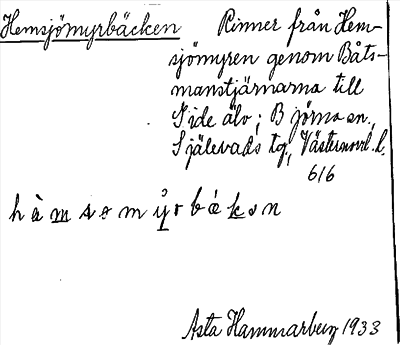 Hemsjömyrbäcken Rinner från Hem-
sjömyren genom Båts-
manstjärnarna till
Gide älv; Björna sn.,
Själevads tg., Västernorrl. l.
616
Asta Hammarberg 1933